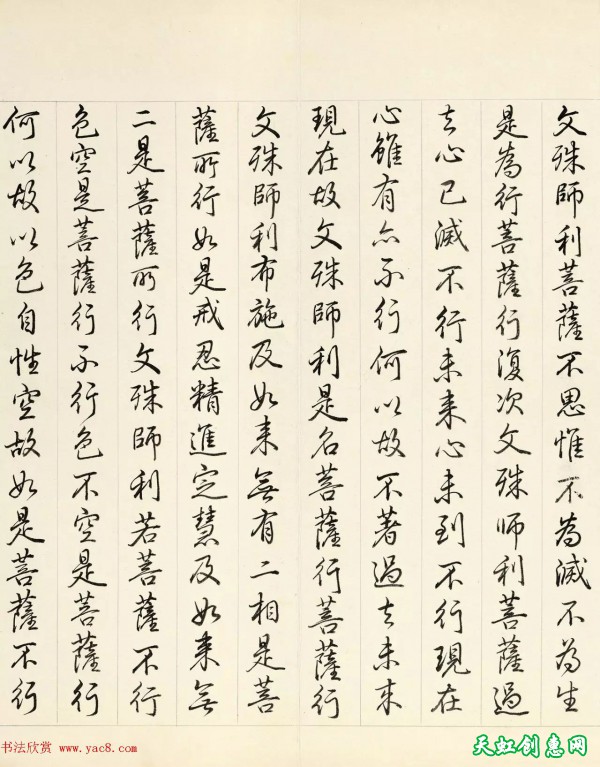 文殊師利菩薩不思惟不為滅不為生
是為行菩薩行復次文殊师利菩薩過
去心已滅不行未来心未到不行現在
心雖有亦不行何以故不著過去未来
現在故文殊師利是名菩薩行菩薩行
文殊師利布施及如来無有二相是菩
薩所行如是戒忍精進定慧及如来無
二是菩薩所行文殊師利若菩薩不行
色空是菩薩行不行色不空是菩薩行
何以故以色自性空故如是菩薩不行
书法欣赏 www.yac8.com
天虹创惠网